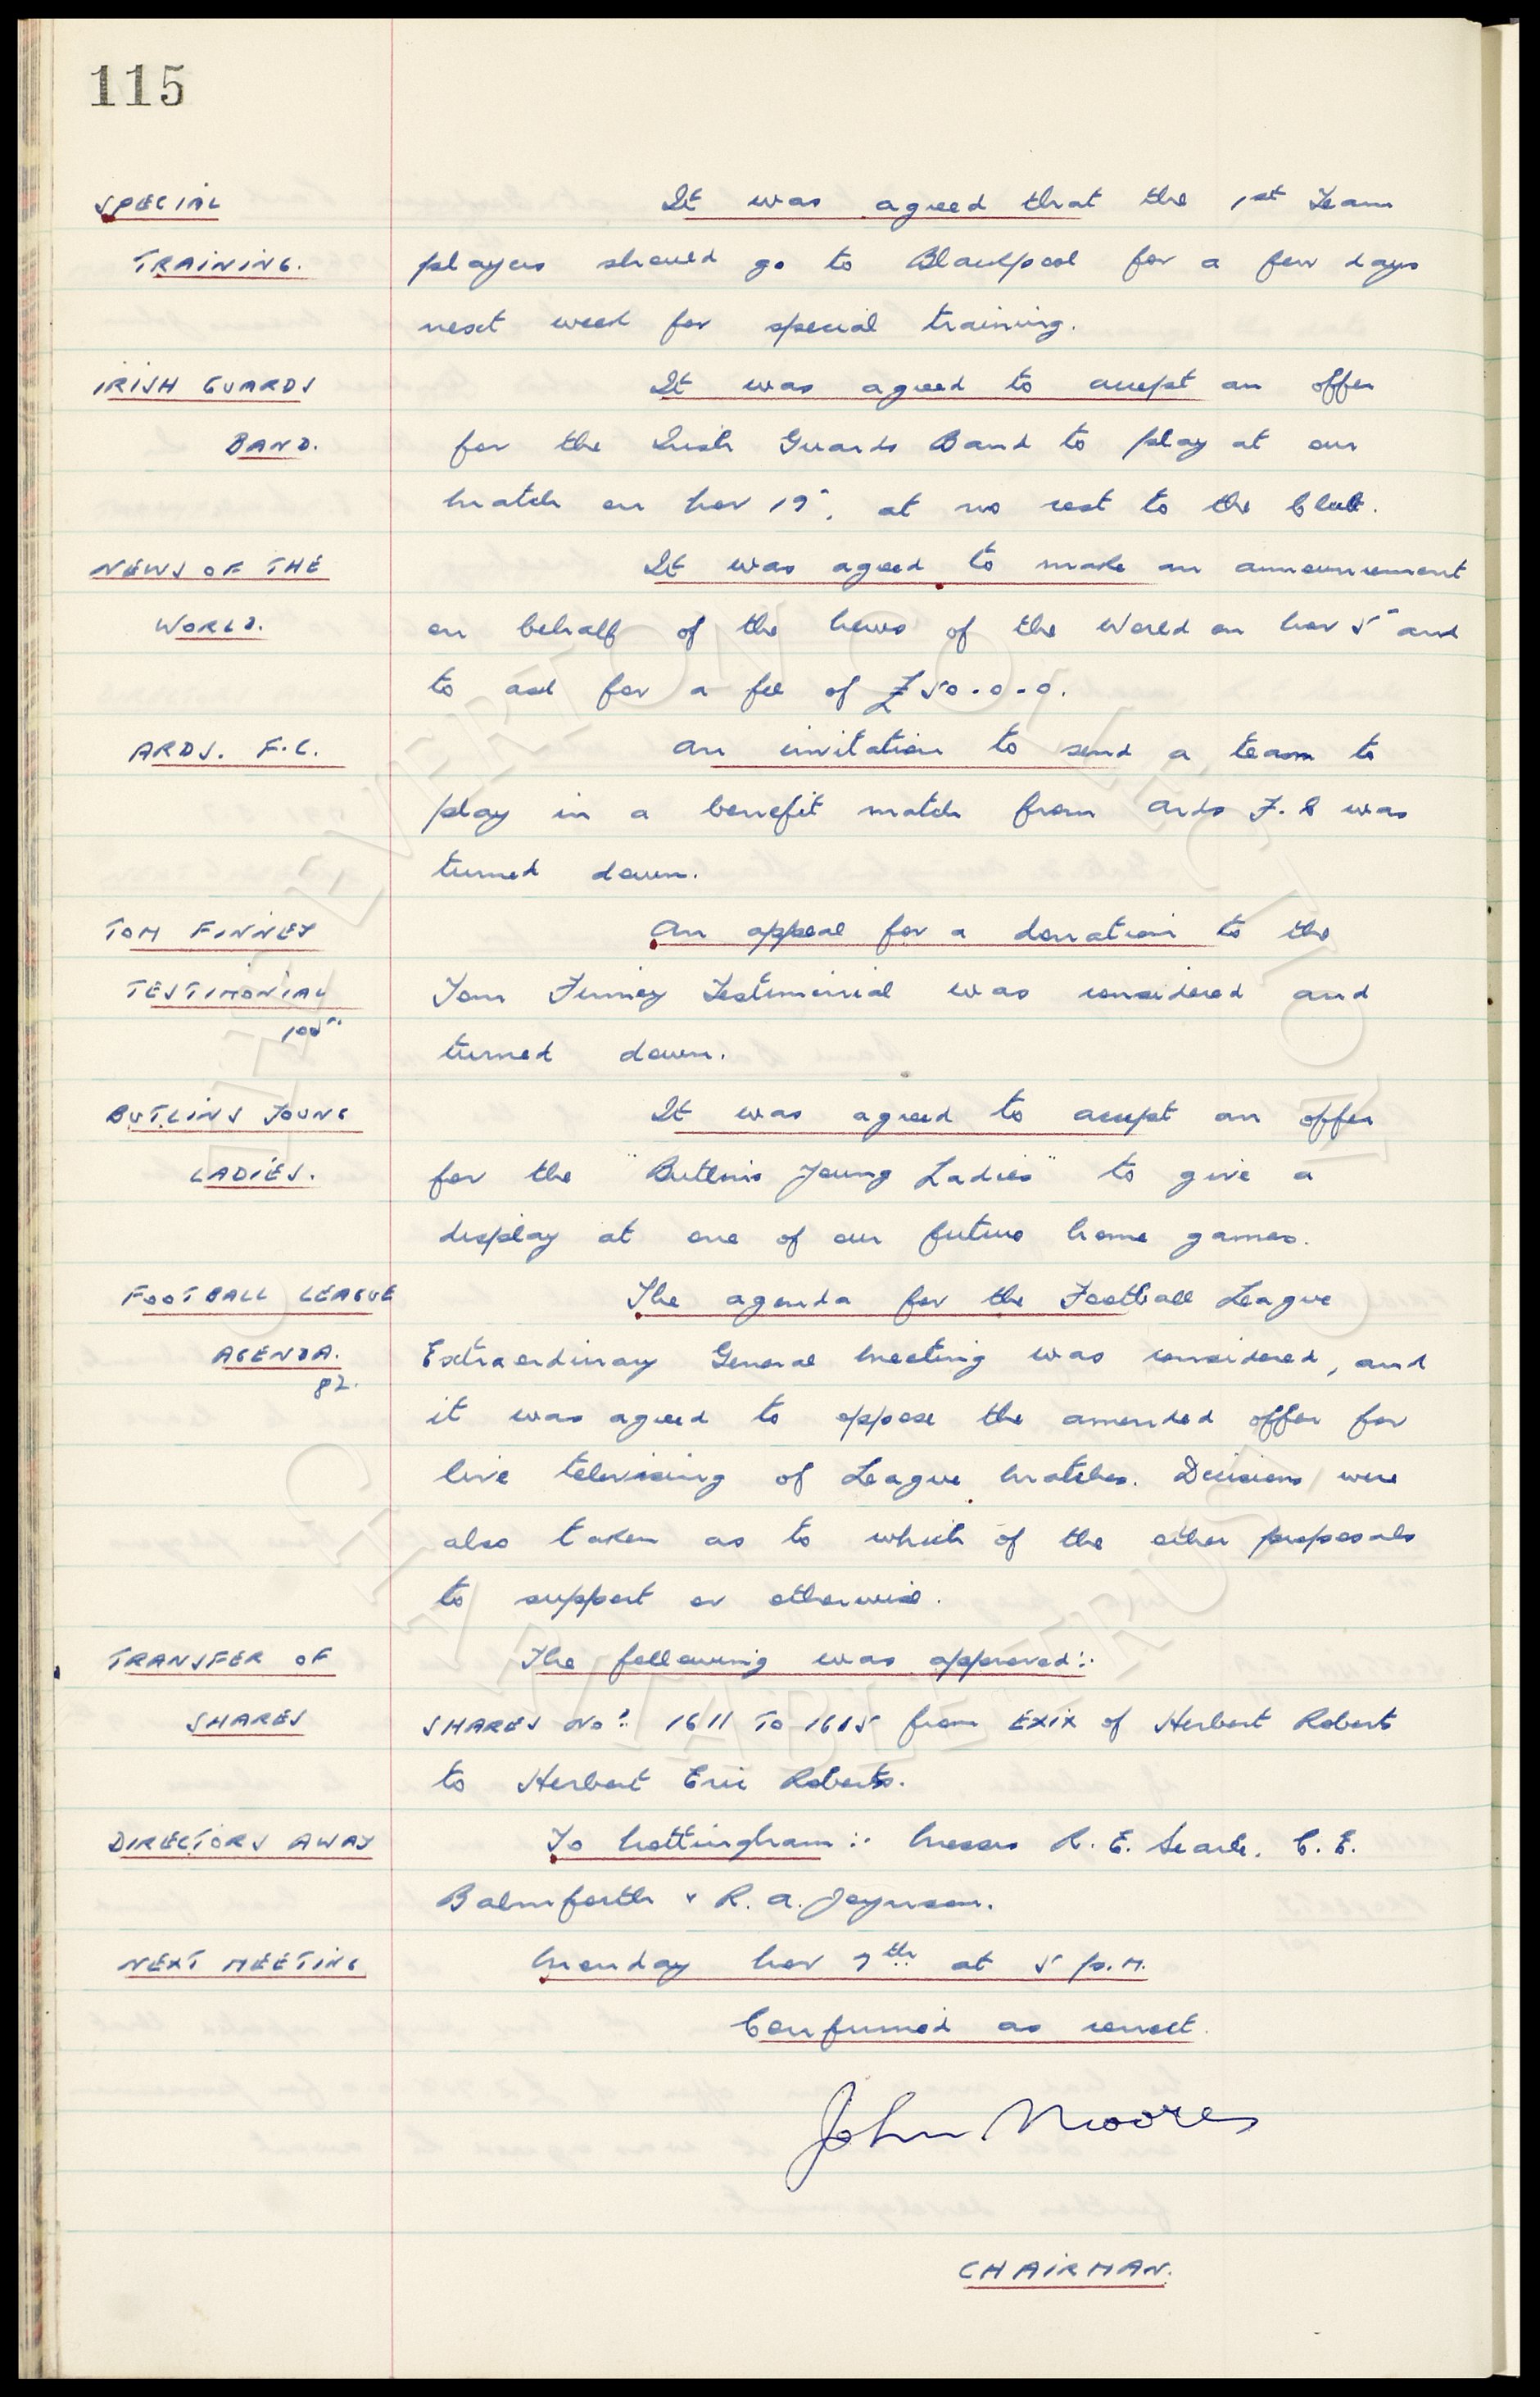 115
SPECIAL It was agreed that the 1st Team
TRAINING. players should go to Blackpool for a few days
next week for special training.
IRISH GUARDS It was agreed to accept an offer
BAND. for the Irish Guards Band to play at our
match on Nov 19", at no cost to the Club.
NEWS OF THE It was agreed to make an announcement
WORLD. on behalf of the News of the World on Nov 5" and
to ask for a fee of £50.0.0.
ARDS. F.C. An invitation to send a team to
play in a benefit match from Ards F.C was
turned down.
TOM FINNEY An appeal for a donation to the
TESTIMONIAL Tom Finney Testimonial was considered and
105"
turned down.
BUTLINS YOUNG It was agreed to accept an offer
LADIES. for the "Butlins Young Ladies" to give a
display at one of our future home games.
FOOTBALL LEAGUE The agenda for the Football League
AGENDA. Extraordinary General Meeting was considered, and
82.
it was agreed to oppose the amended offer for
live televising of League Matches. Decisions were
also taken as to which of the other proposals
to support or otherwise.
TRANSFER OF The following was approved:-
SHARES SHARES NOS: 1611 TO 1615 from EXIX of Herbert Roberts
to Herbert Eric Roberts.
DIRECTORS AWAY To Nottingham:- Messrs R. E. Searle, C. E.
Balmforth & R. A. Joynson.
NEXT MEETING Monday Nov 7th at 5 p.m.
Confirmed as correct.
John Moores
CHAIRMAN.